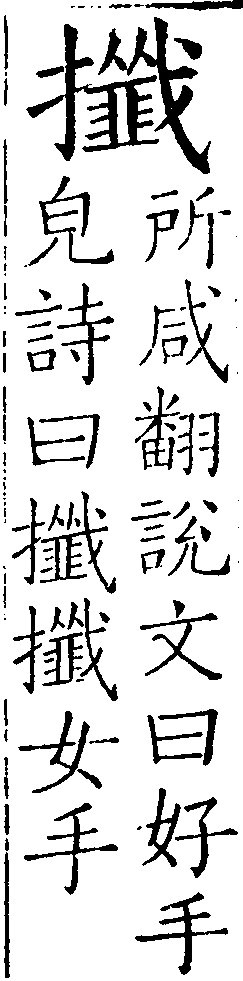 攕
所咸翻說文曰好手
皃詩曰攕攕女手